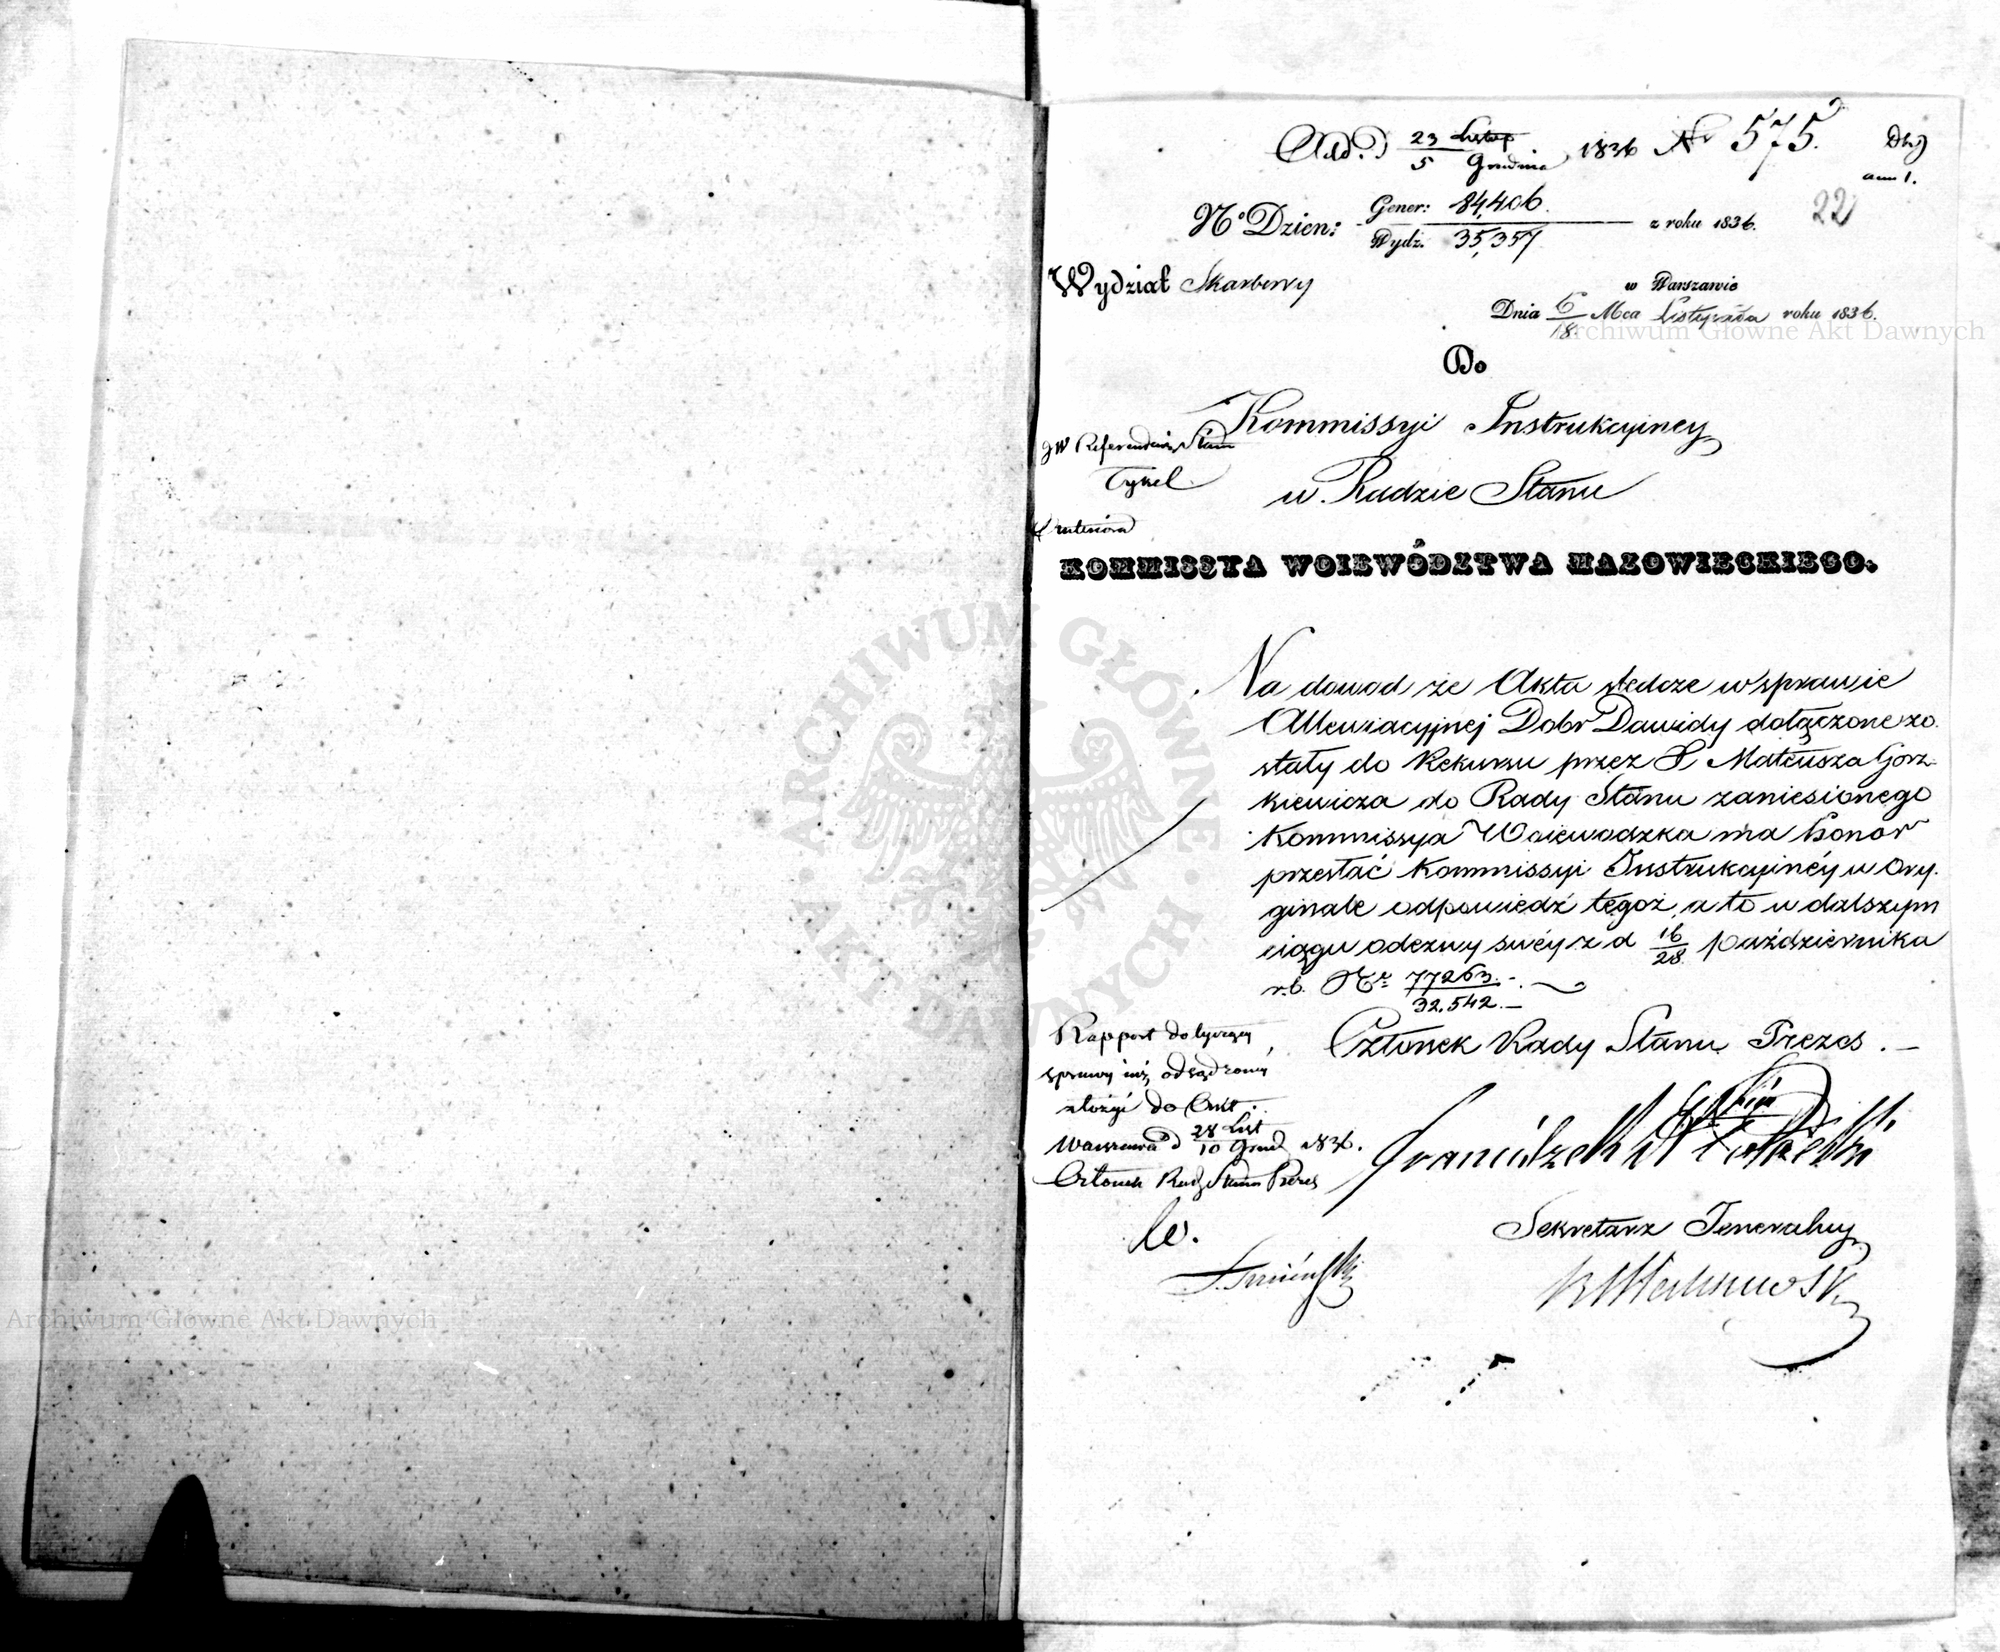 23 Listop
5 Grudnia 1836 Nr 575.
22
No Dzien: Gener: 84,406.
Wydz. 35,357 z roku 1836.
Wydział Skarbowy
w Warszawie
Dnia 6/18 Mca Listopada roku 1836.
Archiwum Główne Akt Dawnych
Do
Kommissyi Instrukcyiney
w Radzie Stanu
JW Referendarz Stanu
Tykel
KOMMISSYA WOIEWÓDZTWA MAZOWIECKIEGO.
Na dowod że Akta sledcze w sprawie
Allewiacyjnej Dobr Dawidy dołączone zo-
stały do Rekursu przez P. Mateusza Gorz-
kiewicza do Rady Stanu zaniesionego
Kommissya Woiewodzka ma honor
przesłać Kommissyi Instrukcyinéy w ory-
ginale odpowiedź tegoż, a to w dalszym
ciągu odezwy swéy z d 16/28 października
r.b. Nr 77263.
32.542.
Członek Rady Stanu Prezes.
Rapport dotyczący
sprawy już odsądzoney
złożyć do Akt.
Warszawa d 28 List
10 Grud 1836.
Członek Rady Stanu Prezes
Sekretarz Generalny
ARCHIWUM GŁÓWNE AKT DAWNYCH
Archiwum Główne Akt Dawnych